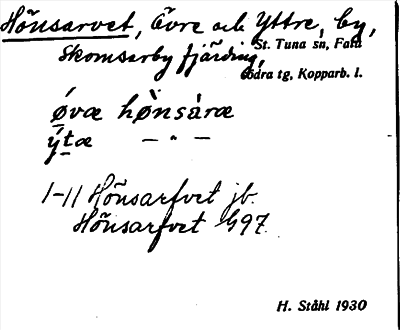 Hönsarvet, Övre och Yttre, by,
Skomsarby fjärding,
St. Tuna sn, Falu
södra tg, Kopparb. l.
øvæ hǿnsàræ
ýtæ — " —
1-11 Hönsarfvet jb.
Hönsarfvet G97.
H. Ståhl 1930